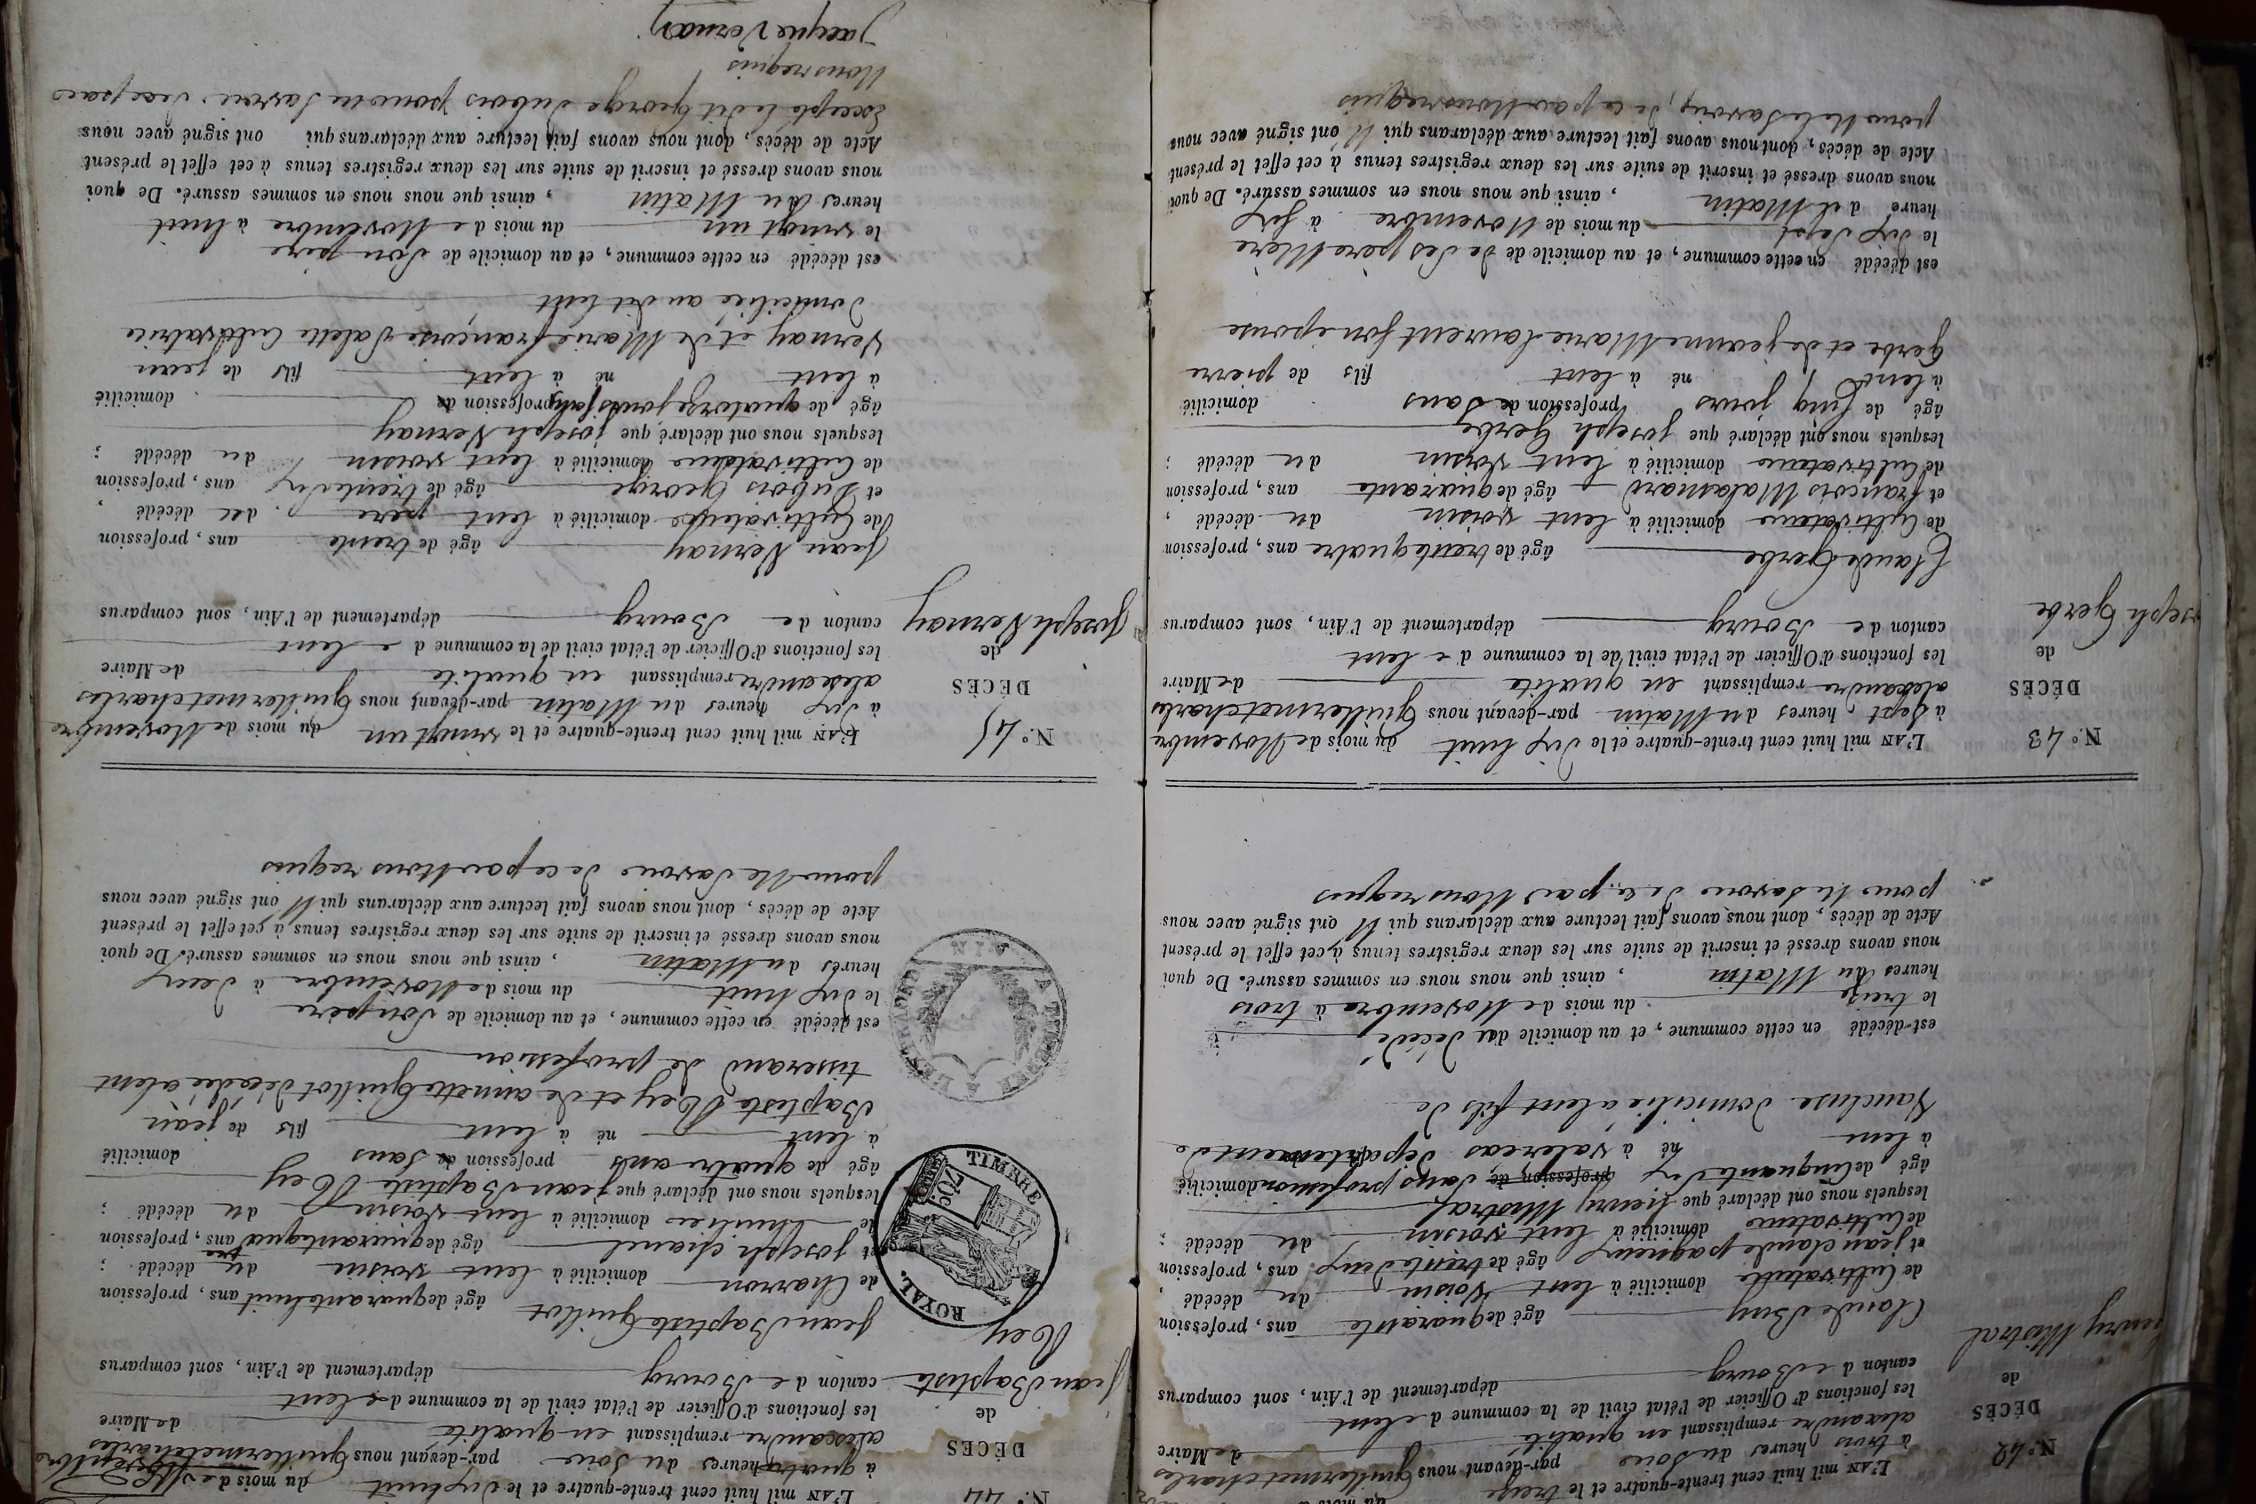 N.º 42
DÉCÈS
de
henry Mistral
L'AN mil huit cent trente-quatre et le treize
à trois heures du Soir par-devant nous Guillermet charles
alexandre remplissant en qualité de Maire
les fonctions d'Officier de l'état civil de la commune de lent
canton de Bourg département de l'Ain, sont comparus
Claude Buy âgé de quarante ans, profession
de Cultivateur domicilié à lent voisin du décédé,
et jean claude pagneux âgé de trente deux ans, profession
de Cultivateur domicilié à lent voisin du décédé ;
lesquels nous ont déclaré que henry Mistral
âgé de Cinquante dix profession de Sans profession domicilié
à lent né à valereas département de
Vaucluse domicilié a lent fils de
est décédé en cette commune, et au domicile du décédé
le treize du mois de Novembre à trois
heures du Matin, ainsi que nous nous en sommes assuré. De quoi
nous avons dressé et inscrit de suite sur les deux registres tenus à cet effet le présent
Acte de décès, dont nous avons fait lecture aux déclarans qui N'ont signé avec nous
pour Ne Savoir de ce par Nous requis
N.º 43
DÉCÈS
de
joseph Gerbe
L'AN mil huit cent trente-quatre et le dix huit du mois de Novembre
à Sept heures du Matin par-devant nous Guillermet charles
alexandre remplissant en qualité de Maire
les fonctions d'Officier de l'état civil de la commune de lent
canton de Bourg département de l'Ain, sont comparus
Claude Gerbe âgé de trente quatre ans, profession
de Cultivateur domicilié à lent voisin du décédé,
et francois Malamard âgé de quarante ans, profession
de Cultivateur domicilié à lent voisin du décédé ;
lesquels nous ont déclaré que joseph Gerbe
âgé de Cinq jours profession de Sans domicilié
à lent né à lent fils de pierre
Gerbe et de jeanne Marie laurent son epouse
est décédé en cette commune, et au domicile de Ses père Mère
le dix Sept du mois de Novembre à Six
heure du Matin, ainsi que nous nous en sommes assuré. De quoi
nous avons dressé et inscrit de suite sur les deux registres tenus à cet effet le présent
Acte de décès, dont nous avons fait lecture aux déclarans qui N'ont signé avec nous
pour Ne le Savoir, de ce par Nous requis
N.º 44
DÉCÈS
de
jean Baptiste
Rey
TIMBRE
ROYAL.
70c.
L'AN mil huit cent trente-quatre et le dix huit du mois de Novembre
à quatre heures du Soir par-devant nous Guillermet charles
alexandre remplissant en qualité de Maire
les fonctions d'Officier de l'état civil de la commune de lent
canton de Bourg département de l'Ain, sont comparus
jean Baptiste Guillot âgé de quarante huit ans, profession
de Charron domicilié à lent voisin du décédé ;
et joseph chanel âgé de quarante quatre ans, profession
de domicilié à lent voisin du décédé ;
lesquels nous ont déclaré que jean Baptiste Rey
âgé de quatre ans profession de Sans domicilié
à lent né à lent fils de jean
Baptiste Rey et de annette Guillot décédée a lent
tisserand de profession
est décédé en cette commune, et au domicile de Son père
le dix huit du mois de Novembre à deux
heures du Matin, ainsi que nous nous en sommes assuré. De quoi
nous avons dressé et inscrit de suite sur les deux registres tenus à cet effet le présent
Acte de décès, dont nous avons fait lecture aux déclarans qui N'ont signé avec nous
pour Ne Savoir de ce par Nous requis
N.º 45
DÉCÈS
de
joseph Vernay
L'AN mil huit cent trente-quatre et le vingt un du mois de Novembre
à dix heures du Matin par-devant nous Guillermet charles
alexandre remplissant en qualité de Maire
les fonctions d'Officier de l'état civil de la commune de lent
canton de Bourg département de l'Ain, sont comparus
jean Vernay âgé de trente ans, profession
de Cultivateur domicilié à lent père du décédé,
et Dubois George âgé de trente dix ans, profession
de Cultivateur domicilié à lent voisin du décédé ;
lesquels nous ont déclaré que joseph Vernay
âgé de quatorze jours profession de domicilié
à lent né à lent fils de jean
Vernay et de Marie françoise Salette Cultivatrice
domiciliée au dit lent
est décédé en cette commune, et au domicile de Son père
le vingt un du mois de Novembre à huit
heures du Matin, ainsi que nous nous en sommes assuré. De quoi
nous avons dressé et inscrit de suite sur les deux registres tenus à cet effet le présent
Acte de décès, dont nous avons fait lecture aux déclarans qui ont signé avec nous
Excepté le dit George Dubois pour ne Savoir de ce par
Nous requis
Jacque Vernay